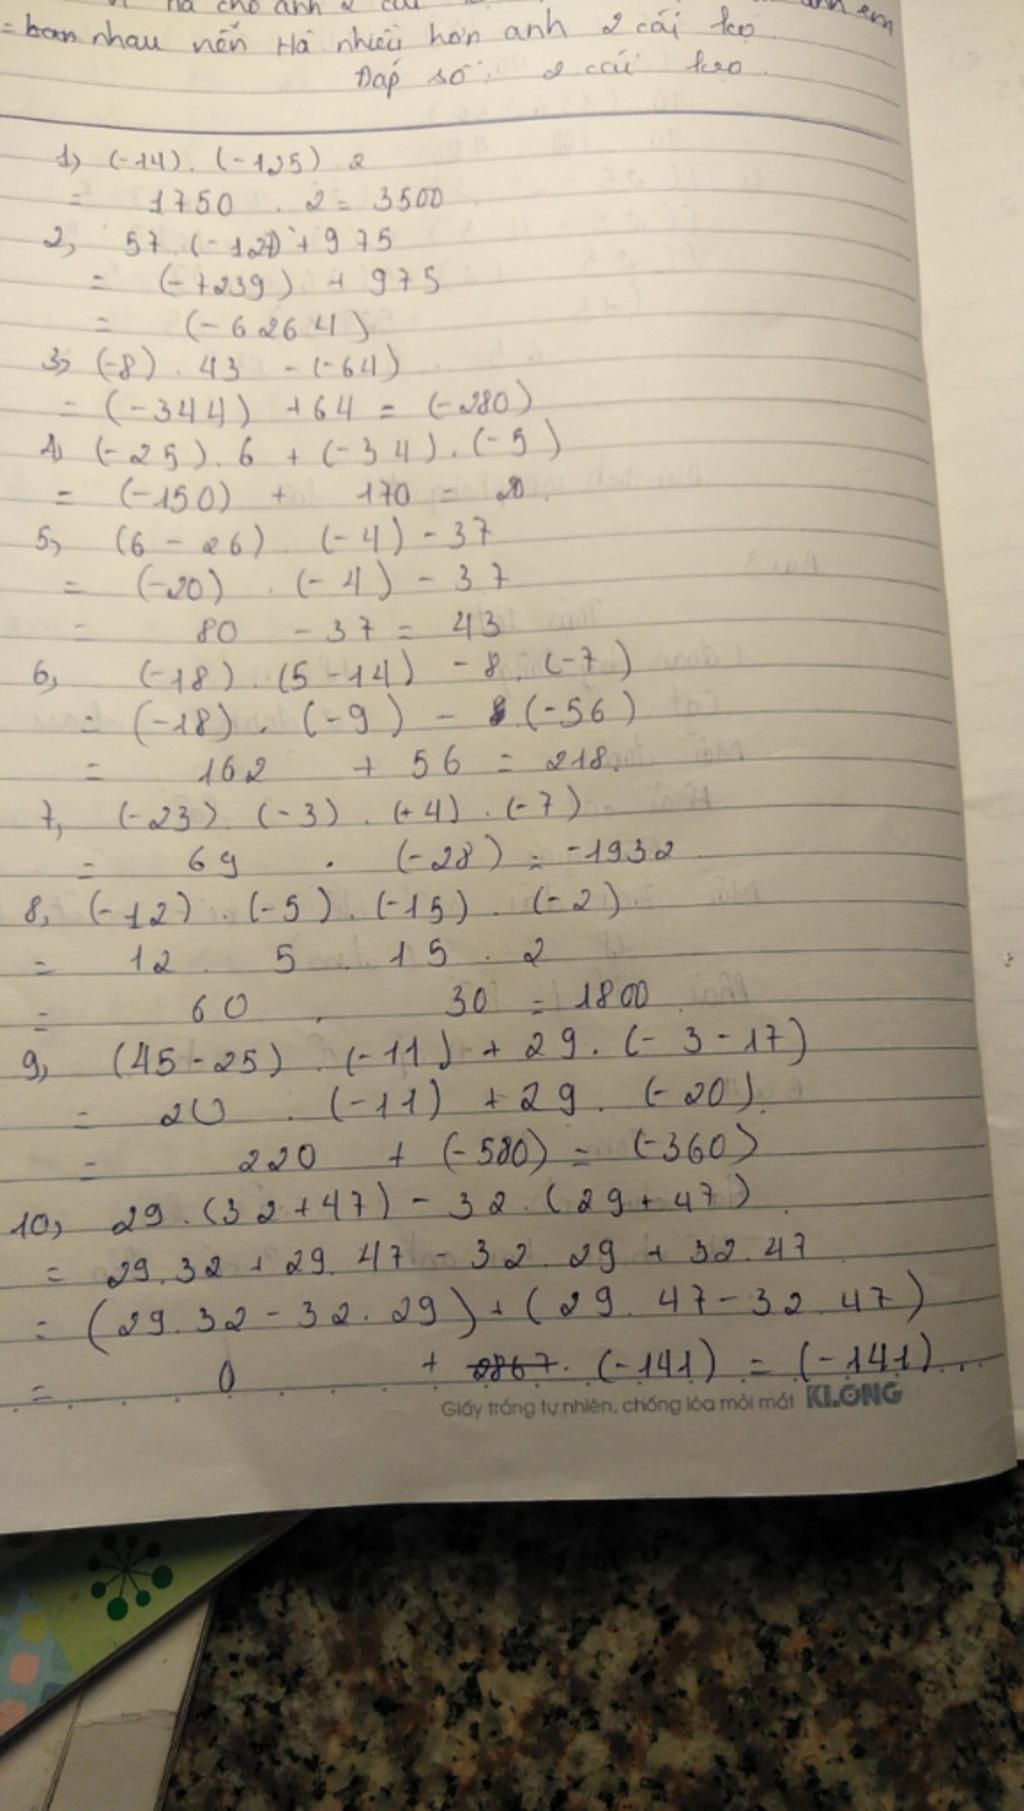 Hà cho anh 2 cái
= bam nhau nên Hà nhiều hơn anh 2 cái kẹo
Đáp số: 2 cái kẹo.
1, (-14). (-125). 2
= 1750 . 2 = 3500
2, 57. (-127) + 975
= (-7239) + 975
= (-6264)
3, (-8). 43 - (-64)
= (-344) + 64 = (-280)
4, (-25). 6 + (-34). (-5)
= (-150) + 170 = 20.
5, (6 - 26) . (-4) - 37
= (-20) . (-4) - 37
= 80 - 37 = 43
6, (-18). (5 - 14) - 8. (-7)
= (-18). (-9) - (-56)
= 162 + 56 = 218.
7, (-23). (-3). (+4). (-7)
= 69 . (-28) = -1932
8, (-12). (-5). (-15). (-2)
= 12 . 5 . 15 . 2
= 60 . 30 = 1800
9, (45 - 25) . (-11) + 29. (-3 - 17)
= 20 . (-11) + 29. (-20).
= 220 + (-580) = (-360)
10, 29. (32 + 47) - 32. (29 + 47)
= 29.32 + 29.47 - 32.29 + 32.47
= (29.32 - 32.29) + (29.47 - 32.47)
= 0 + 2867. (-141) = (-141)
Giấy trắng tự nhiên, chống lóa mỏi mắt KLONG